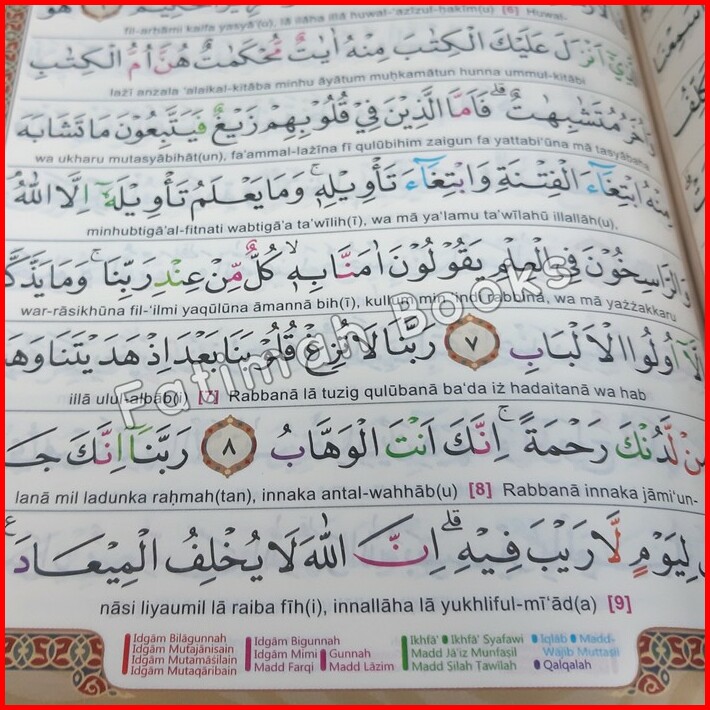 fil-arḥāmi kaifa yasyā'(u), lā ilāha illā huwal-'azīzul-ḥakīm(u) [6] Huwal-
اَنْزَلَ عَلَيْكَ الْكِتٰبَ مِنْهُ اٰيٰتٌ مُّحْكَمٰتٌ هُنَّ اُمُّ الْكِتٰبِ
lażī anzala 'alaikal-kitāba minhu āyātum muḥkamātun hunna ummul-kitābi
وَاُخَرُ مُتَشٰبِهٰتٌ ۗ فَاَمَّا الَّذِيْنَ فِيْ قُلُوْبِهِمْ زَيْغٌ فَيَتَّبِعُوْنَ مَا تَشَابَهَ
wa ukharu mutasyābihāt(un), fa'ammal-lażīna fī qulūbihim zaigun fa yattabi'ūna mā tasyābaha
مِنْهُ ابْتِغَاۤءَ الْفِتْنَةِ وَابْتِغَاۤءَ تَأْوِيْلِهٖ ۚ وَمَا يَعْلَمُ تَأْوِيْلَهٗٓ اِلَّا اللّٰهُ
minhubtigā'al-fitnati wabtigā'a ta'wīlih(ī), wa mā ya'lamu ta'wīlahū illallāh(u),
وَالرَّاسِخُوْنَ فِى الْعِلْمِ يَقُوْلُوْنَ اٰمَنَّا بِهٖ ۙ كُلٌّ مِّنْ عِنْدِ رَبِّنَا ۚ وَمَا يَذَّكَّ
war-rāsikhūna fil-'ilmi yaqūlūna āmannā bih(ī), kullum min 'indi rabbinā, wa mā yażżakkaru
اُولُوا الْاَلْبَابِ ٧ رَبَّنَا لَا تُزِغْ قُلُوْبَنَا بَعْدَ اِذْ هَدَيْتَنَا وَهَ
illā ulul-albāb(i) [7] Rabbanā lā tuzig qulūbanā ba'da iż hadaitanā wa hab
مِنْ لَّدُنْكَ رَحْمَةً ۚ اِنَّكَ اَنْتَ الْوَهَّابُ ٨ رَبَّنَآ اِنَّكَ جَا
lanā mil ladunka raḥmah(tan), innaka antal-wahhāb(u) [8] Rabbanā innaka jāmi'un-
لِيَوْمٍ لَّا رَيْبَ فِيْهِ ۗ اِنَّ اللّٰهَ لَا يُخْلِفُ الْمِيْعَادَ
nāsi liyaumil lā raiba fīh(i), innallāha lā yukhliful-mī'ād(a) [9]
Fatimah Books
Idgām Bilāgunnah
Idgām Mutajānisain
Idgām Mutamāṡilain
Idgām Mutaqāribain
Idgām Bigunnah
Idgām Mimi Gunnah
Madd Farqi Madd Lāzim
Ikhfā' Ikhfā' Syafawi
Madd Jā'iz Munfaṣil
Madd Ṣilah Ṭawīlah
Iqlāb Madd-
Wājib Muttaṣil
Qalqalah